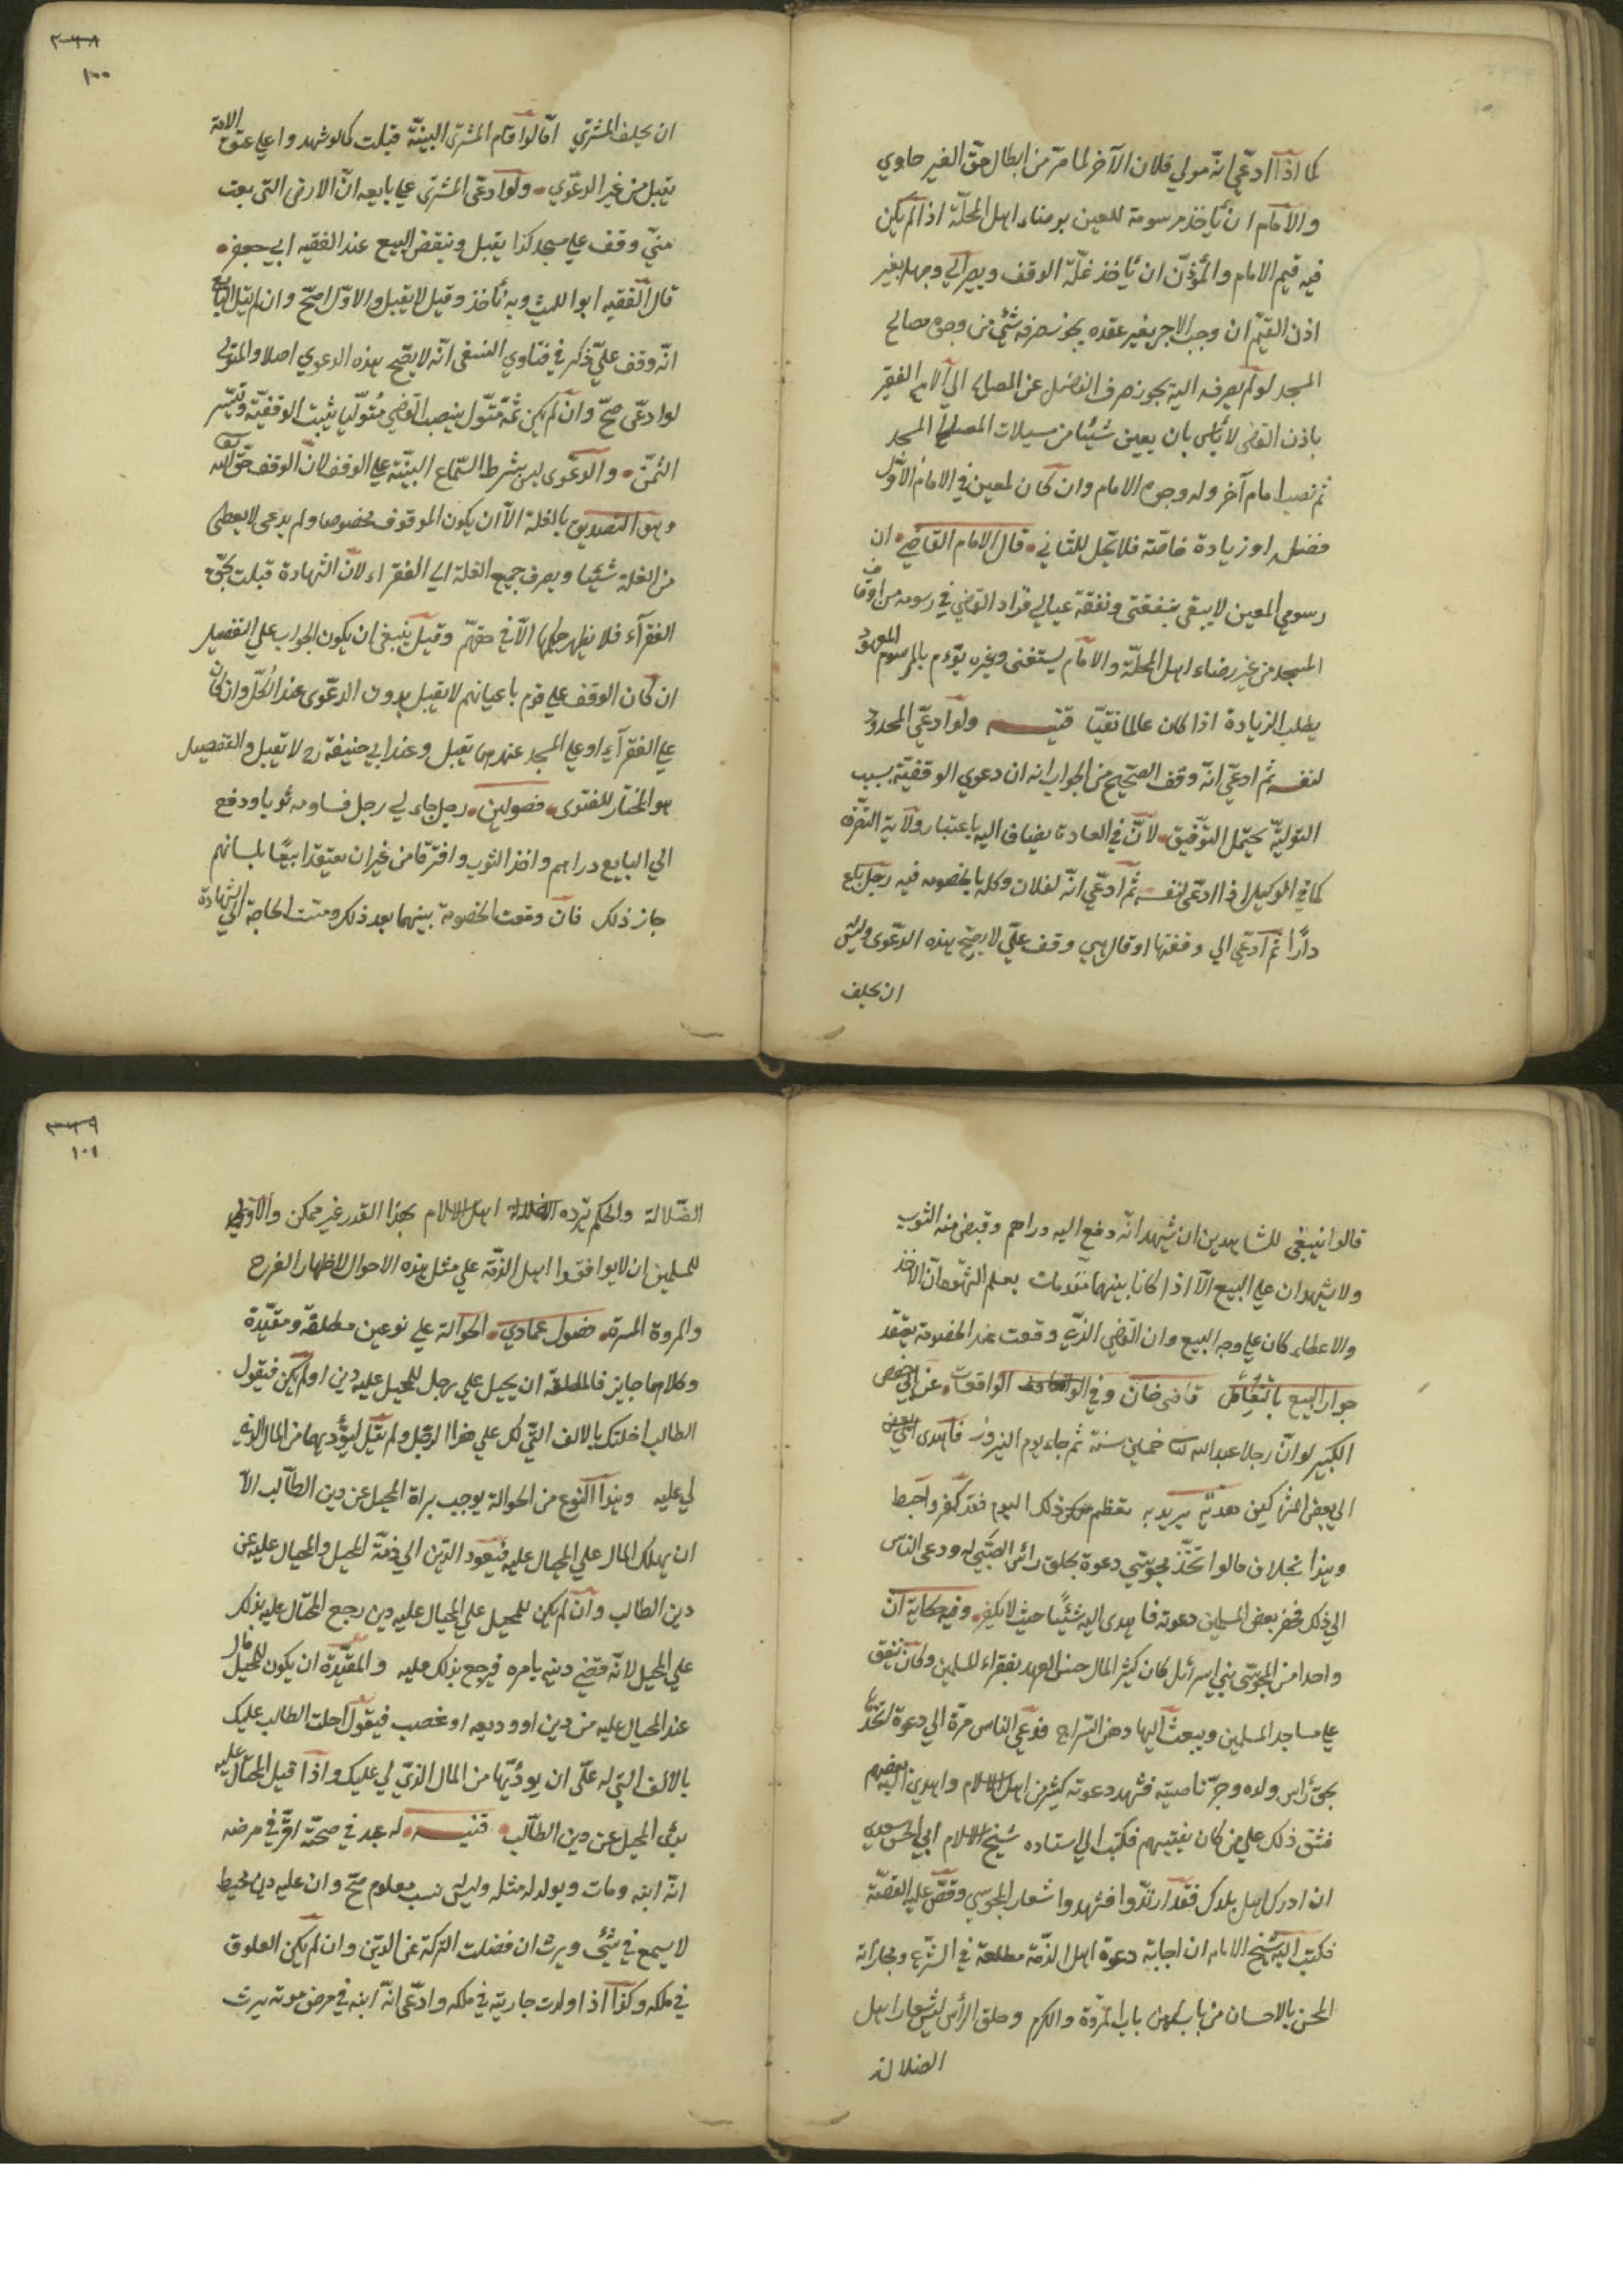 كما اذا ادعي انه مولي فلان الآخر لما مر من ابطال حق الغير حاوي
والامام ان يأخذ مرسومة للعين برضاء اهل المحلة اذا لم يكن
فيه قيم الامام والمؤذن ان يأخذ غلة الوقف ويصرالي وجهها بغير
اذن القيم ان وجب الاجر بغير عقده يجوز صرفه شئ من وجوه مصالح
المسجد لو لم يصرفه اليه يجوز صرف الفضل عن المصالح الي الامام الفقير
باذن القاضي لا بأس بان يعين شيئا من مسبلات المصالح المسجد
ثم نصب امام آخر وله وجوه الامام وان كان لمعين في الامام الاول
فضل او زيادة خاصة فلا تحل للثاني قال الامام القاضي ان
رسومي المعين لا يبقي بنفقتي ونفقة عيالي فزاد القاضي في رسومه من اوقاف
المسجد من غير رضاء اهل المحلة والامام يستغني وغيره يؤم بالمرسوم المعهود
يطلب الزيادة اذا كان عالما تقيا قنيه ولو ادعي المحدود
لنفسه ثم ادعي انه وقف الصحيح من الجواب انه ان دعوي الوقفية بسبب
التولية يحتمل التوفيق لان في العادة يضاف اليه باعتبار ولاية التصرف
كما في الوكيل اذا ادعي لنفسه ثم ادعي انه لفلان وكله بالخصومه فيه رجل باع
دارا ثم ادعي اني وقفتها او قال هي وقف علي لا يصح هذه الدعوي وليس
ان يحلف
٣٤٨
١٠٠
ان يحلف المشتري اما لو اقام المشتري البينة قبلت كما لو شهدوا علي عتق الامة
يقبل من غير الدعوي ولو ادعي المشتري علي بايعه ان الارض التي بعت
مني وقف علي مسجد كذا يقبل وينقض البيع عند الفقيه ابي جعفر
قال الفقيه ابو الليث وبه نأخذ وقيل لا يقبل والاول اصح وان لم يقل البايع
انه وقف علي ذكر في فتاوي النسفي انه لا يصح هذه الدعوي اصلا والمتولي
لو ادعي صح وان لم يكن ثمة متول ينصب القاضي متوليا يثبت الوقفية
الثمن والدعوي ليس بشرط السماع البينة علي الوقف لان الوقف حق الله
وهو التصديق بالغلة الا ان يكون الموقوف مخصوصا ولم يدعي لا يعطي
من الغلة شيئا ويصرف جميع الغلة الي الفقراء لان الشهادة قبلت بحق
الفقرآء فلا يظهر حكمها الا في حقهم وقيل ينبغي ان يكون الجواب علي التفصيل
ان كان الوقف علي قوم باعيانهم لا يقبل بدون الدعوي عند الكل وان كان
علي الفقرآء او علي المسجد عندهما تقبل وعند ابي حنيفة رح لا تقبل والتفصيل
هو المختار للفتوي فصولين رجل جاء لي رجل فساومه ثوبا ودفع
الي البايع دراهم واخذ الثوب وافترقا من غير ان يعتقدا بيعا بلسانهم
جاز ذلك فان وقعت الخصومة بينهما بعد ذلك ومست الحاجة الي الشهادة
قالوا ينبغي للشاهدين ان يشهد انه دفع اليه دراهم وقبض منه الثوب
ولا يشهدان علي البيع الا اذا كانا بينهما مقدمات يعلم الشهود ان الاخذ
والاعطاء كان علي وجه البيع وان القاضي الذي وقعت عند الخصومة يعتقد
جواز البيع بالتعامل قاضي خان وفي الواقعات عن ابي حفص
الكبير لو ان رجلا عبد الله خمسين سنة ثم جاء يوم النيروز فاهدي
الي بعض المشركين هدية يريد به تعظم ذلك اليوم فقد كفر واحبط
وهذا بخلاف مالو اتخذ مجوسي دعوة بحلق رأس الصبي له ودعي الناس
الي ذلك فحضر بعض المسلمين دعوته فاهدي اليه شيئا حيث لا يكفر وفيه حكاية ان
واحدا من المجوسي بني اسرائل كان كثير المال حسن العهد بفقراء المسلمين وكان ينفق
علي مساجد المسلمين ويبعث اليها دهن السراج فدعي الناس مرة الي دعوة اتخذها
بحق رأس ولده وجز ناصيته فشهد دعوته كثير من اهل الاسلام واهدي اليه بعضهم
فشق ذلك علي من كان بفقيههم فكتب الي استاده شيخ الاسلام ابي الحسن
ان ادرك اهل بلدك فقد ارتدوا فشهدوا شعار المجوسي وقص عليه القصة
فكتب اليه شيخ الامام ان اجابة دعوة اهل الذمة مطلقة في الشرع ومجازاة
المحسن بالاحسان من باب المروة والكرم وحلق الرأس ليس شعار اهل
الضلالة
٣٤٩
١٠١
الضلالة والحكم بردة اهل الاسلام بهذا القدر غير ممكن والاولي
للمسلمين ان لا يوافقوا اهل الذمة علي مثل هذه الاحوال لاظهار الفرح
والمروة المسرة فصول عمادي الحوالة علي نوعين مطلقة ومقيدة
وكلاهما جايز فالمطلقة ان يحيل علي رجل للمحيل عليه دين او لم يكن فيقول
الطالب احلتك بالالف التي لك علي هذا الرجل ولم يقل ليؤديهما من المال الذي
لي عليه وهذا النوع من الحوالة يوجب براة المحيل عن دين الطالب الا
ان يهلك المال علي المحيال عليه فيعود الدين الي ذمة المحيل والمحيال عليه عن
دين الطالب وان لم يكن للمحيل علي المحيال عليه دين رجع المحتال عليه بذلك
علي المحيل لانه قضي دينه بامره فيرجع بذلك عليه والمقيدة ان يكون للمحيل مال
عند المحيال عليه من دين او وديعه او غصب فيقول احلت الطالب عليك
بالالف التي له علي ان يوديها من المال الذي لي عليك واذا قبل المحتال عليه
برئ المحيل عن دين الطالب قنيه له عبد في صحته اقر في مرضه
انه ابنه ومات ويولد له مثله وليس له نسب معلوم صح وان عليه دين محيط
لا يسمع في شئ ويرث ان فضلت التركة عن الدين وان لم يكن العلوق
في ملكه وكذا اذا ولدت جاريته في ملكه وادعي انه ابنه في مرض موته يرث